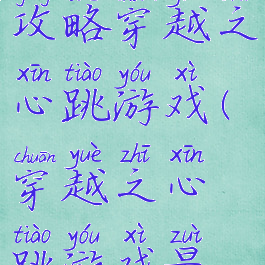 攻略穿越之
xīn tiào yóu xì
心跳游戏(
chuān yuè zhī xīn
穿越之心
tiào yóu xì zuì
跳游戏最